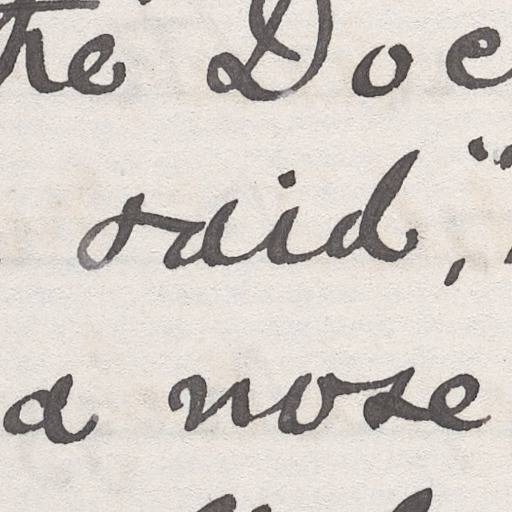 the Doc
said, "
a nose